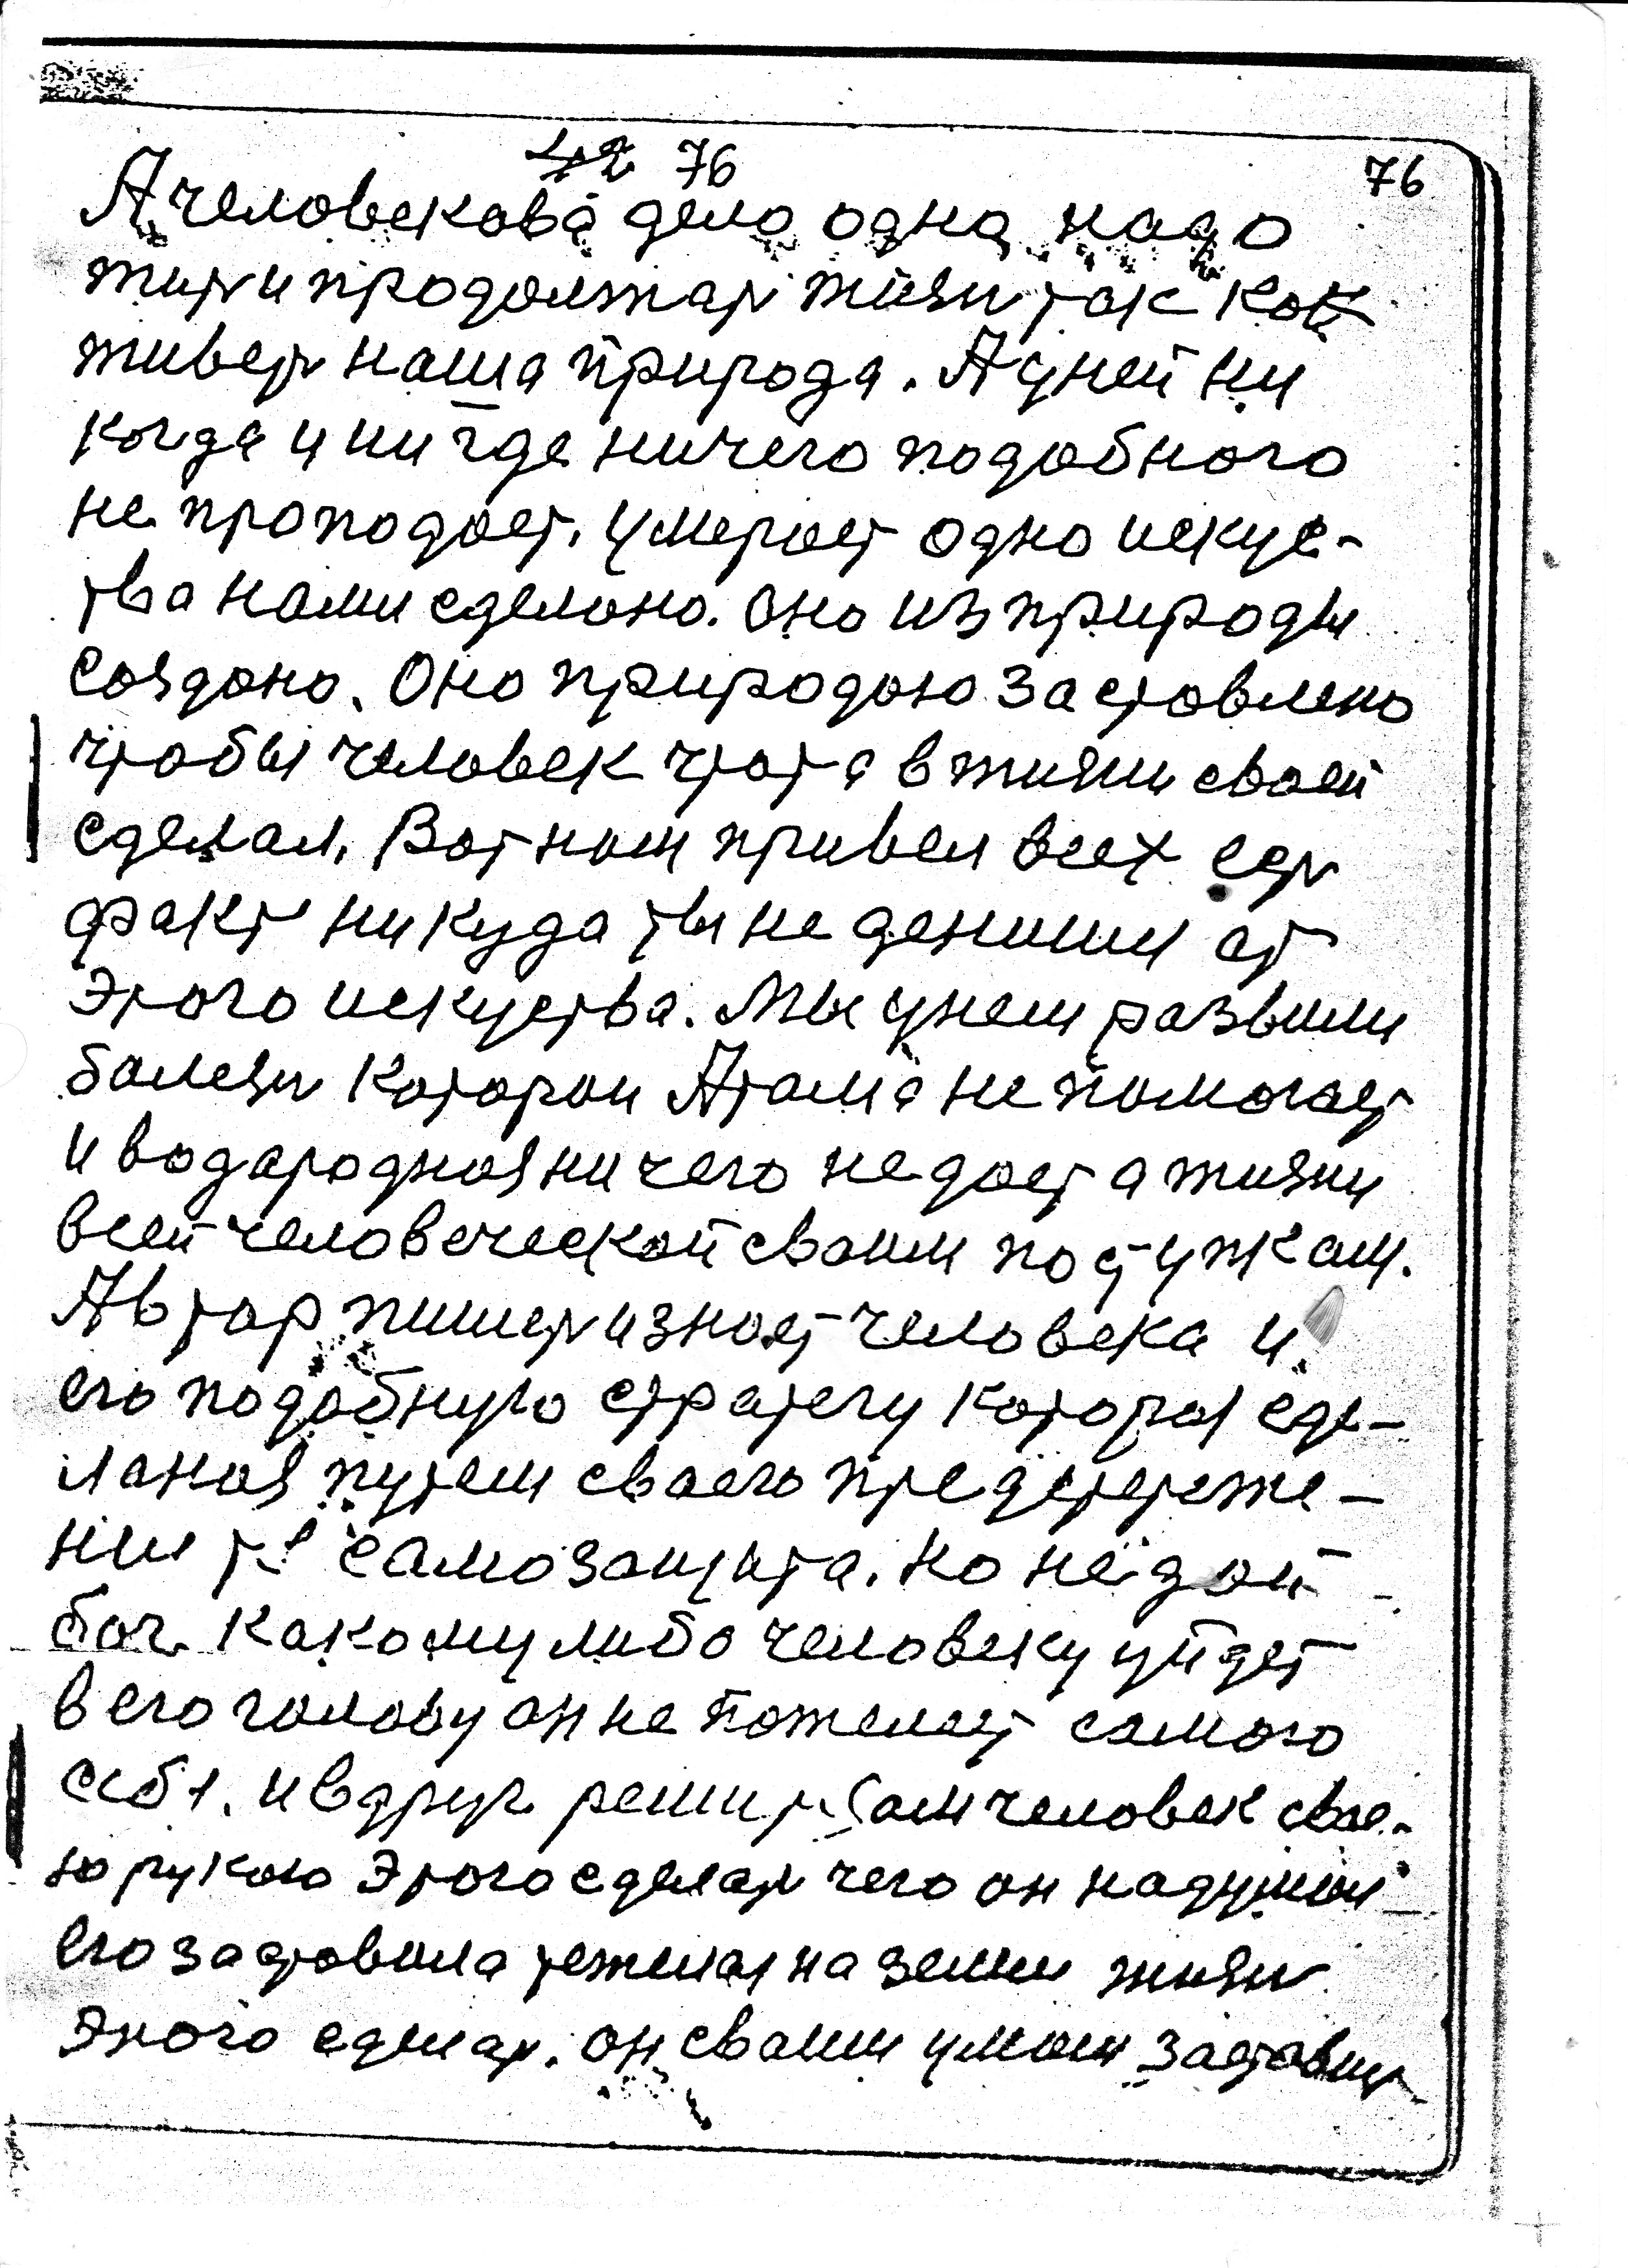 76
76
А человекова дело одна надо
жить и продолжать жизнь так как
живеть наша природа. А у ней ни
когда и ни где ничего подобного
не проподает. умерает одно искус-
тва нами сделоно. оно из природы
создоно. Оно природою заставлено
чтобы человек чтота в жизни своей
сделал. Вот нам привел всех есть
факт ни куда ты не денишь от
этого искуства. Мы у нем развили
болезнь которои Атома не помогает
и водародная ни чего не дает а жизни
всей человеческой своим поступкам.
Автар пишет и знает человека и
его подобную стратегу которая сде-
ланая путем своего предстереже-
ния самозащита. но не дай
бог какому либо человеку уйдет
в его голову он не пожелает самого
себя. и вдруг решит сам человек свое-
ю рукою этого сделать чего он надумал
его заставила тежелая на земли жизнь
этого сделать. он своим умом заставит